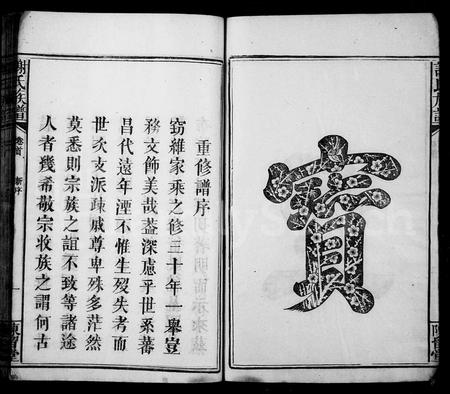 賓
重修譜序
竊維家乘之修三十年一舉豈
務文飾美哉葢深慮乎世系蕃
昌代遠年湮不惟生歿失考而
世次支派疎戚尊卑殊多茫然
莫悉則宗族之誼不致等諸途
人者幾希敬宗收族之謂何古
謝氏族譜
卷首
新序
一
陳留堂